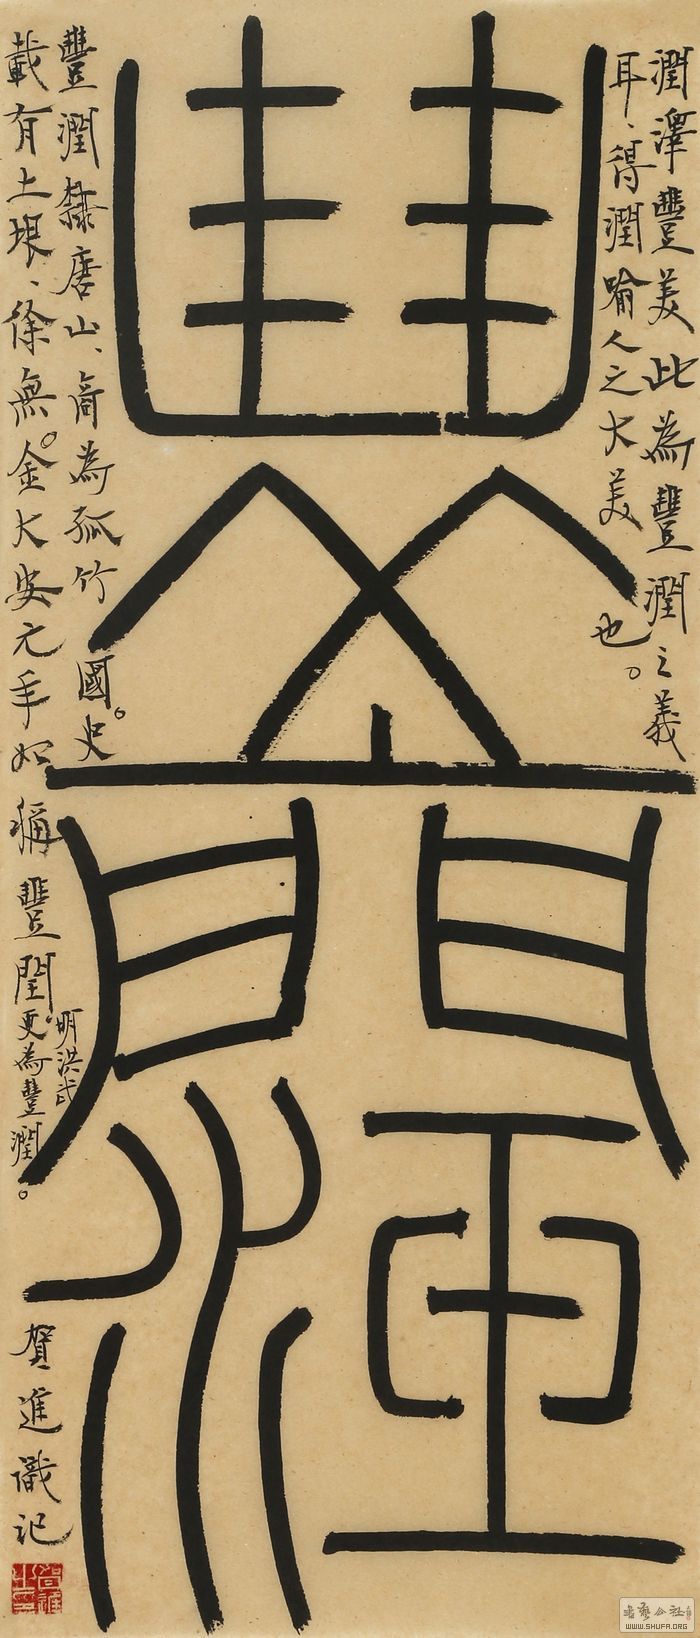 潤澤豐美此為豐潤之義
耳、得潤喻人之大美也。
豐潤
豐潤隸唐山、商為孤竹國。史
載有土垠、徐無。金大安元年始稱豐閏。明洪武
更為豐潤。
賀進識記
书艺公社
WWW.SHUFA.ORG